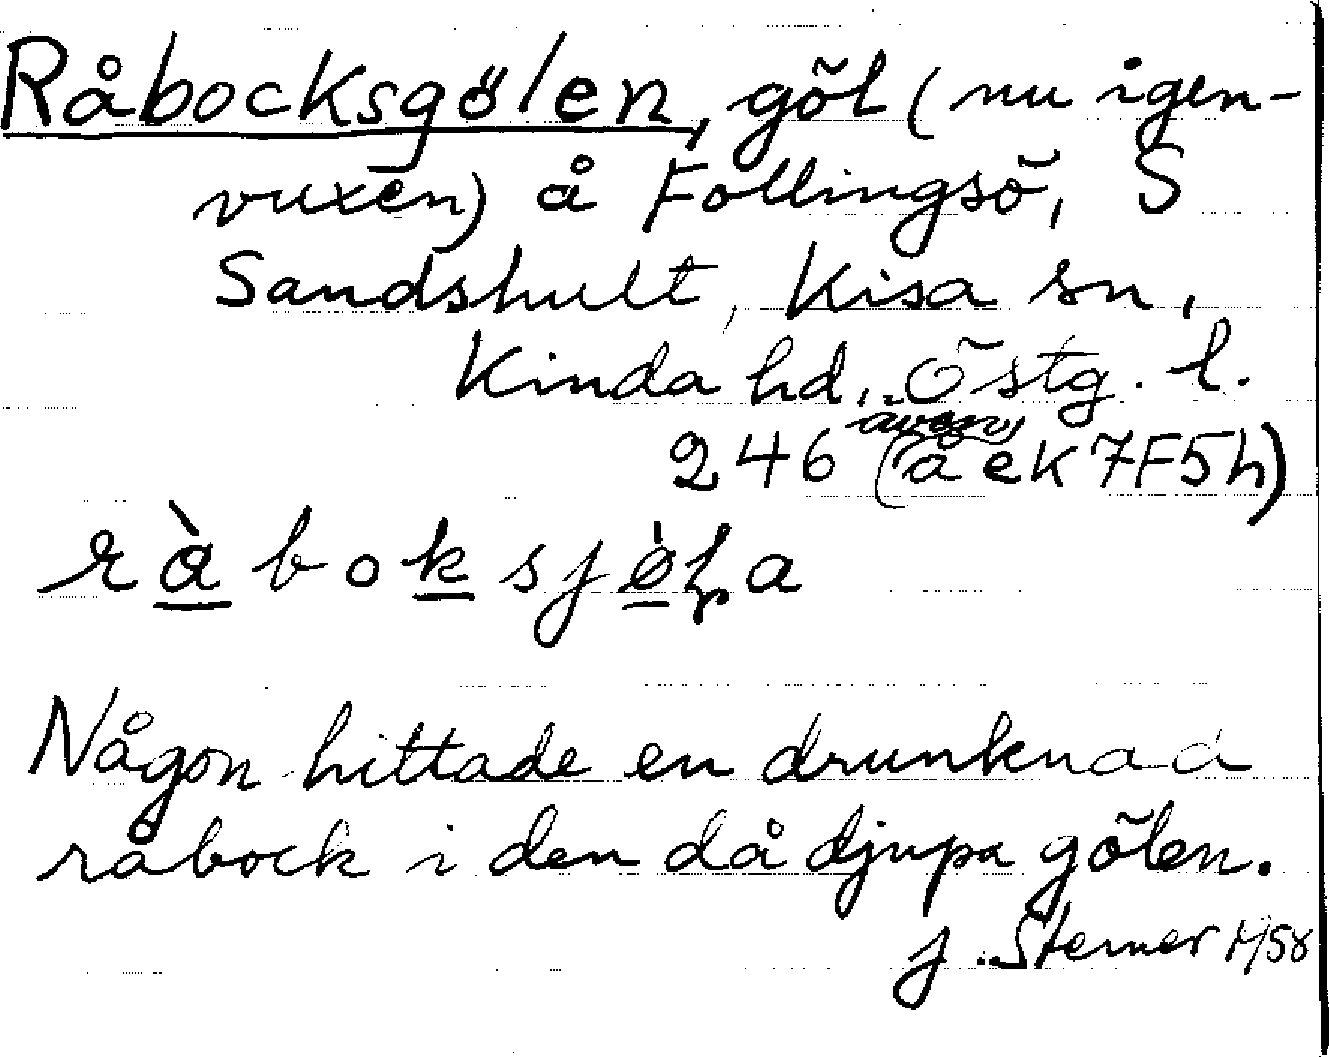 Råbocksgölen, göl (nu igen-
vuxen) å Föllingsö, S
Sandshult, Kisa sn,
Kinda hd, Östg. l.
246 (även å ek 7F5h)
råboksjøla
Någon hittade en drunknad
råbock i den då djupa gölen.
J. Sterner